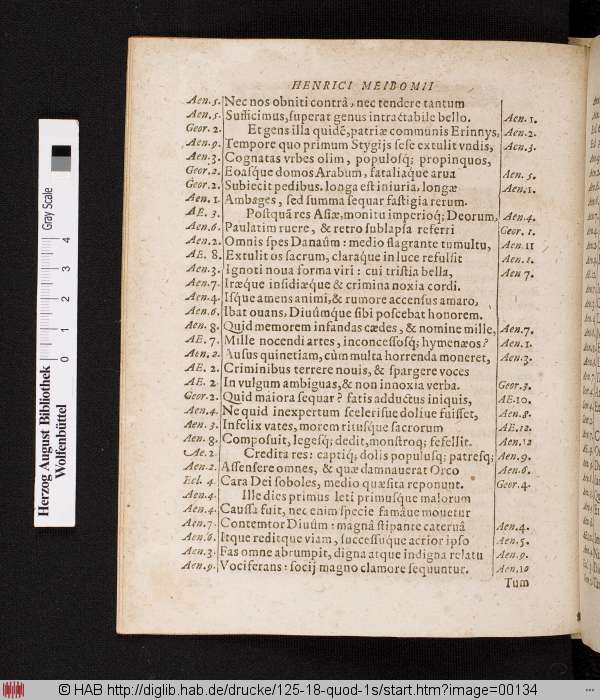 HENRICI MEIBOMII
Aen. 5. Nec nos obniti contrà, nec tendere tantum
Aen. 5. Sufficimus, superat genus intractabile bello. Aen. 1.
Geor. 2. Et gens illa quidē, patriæ communis Erinnys, Aen. 2.
Aen. 9. Tempore quo primum Stygijs sese extulit vndis, Aen. 3.
Aen. 3. Cognatas vrbes olim, populosq; propinquos,
Geor. 2. Eoasque domos Arabum, fataliaque arua Aen. 5.
Geor. 2. Subiecit pedibus. longa est iniuria, longæ Aen. 1.
Aen. 1. Ambages, sed summa sequar fastigia rerum.
AE. 3. Postquā res Asiæ, monitu imperioq; Deorum, Aen. 4.
Aen. 6. Paulatim ruere, & retro sublapsa referri Geor. 1.
Aen. 2. Omnis spes Danaûm: medio flagrante tumultu, Aen. 11
AE. 8. Extulit os sacrum, claraque in luce refulsit Aen. 1.
Aen. 3. Ignoti noua forma viri: cui tristia bella, Aen 7.
Aen. 7. Iræque insidiæque & crimina noxia cordi.
Aen. 4. Isque amens animi, & rumore accensus amaro,
Aen. 6. Ibat ouans, Diuûmque sibi poscebat honorem.
Aen. 8. Quid memorem infandas cædes, & nomine mille, Aen. 7.
AE. 7. Mille nocendi artes, inconcessosq; hymenæos? Aen. 1.
Aen. 2. Ausus quinetiam, cùm multa horrenda moneret, Aen. 3.
AE. 2. Criminibus terrere nouis, & spargere voces
AE. 2 In vulgum ambiguas, & non innoxia verba. Geor. 3.
Geor. 2. Quid maiora sequar? fatis adductus iniquis, AE. 10.
Aen. 4. Ne quid inexpertum scelerisue doliue fuisset, Aen. 8.
Aen. 3. Infelix vates, morem ritusque sacrorum AE. 12.
Aen. 8. Composuit, legesq; dedit, monstroq; fefellit. Aen. 12
Ae. 2. Credita res: captiq; dolis populusq; patresq; Aen. 9.
Aen. 2. Assensere omnes, & quæ damnauerat Orco Aen. 6.
Ecl. 4. Cara Dei soboles, medio quæsita reponunt. Geor. 4.
Aen. 4. Ille dies primus leti primusque malorum
Aen. 4. Caussa fuit, nec enim specie famâue mouetur
Aen. 7. Contemtor Diuûm: magnâ stipante cateruâ Aen. 4.
Aen. 6. Itque reditque viam, successuque acrior ipso Aen. 5.
Aen. 3. Fas omne abrumpit, digna atque indigna relatu Aen. 9.
Aen. 9. Vociferans: socij magno clamore sequuntur. Aen. 10
Tum
Herzog August Bibliothek
Wolfenbüttel
Gray Scale
0 1 2 3 4
© HAB http://diglib.hab.de/drucke/125-18-quod-1s/start.htm?image=00134